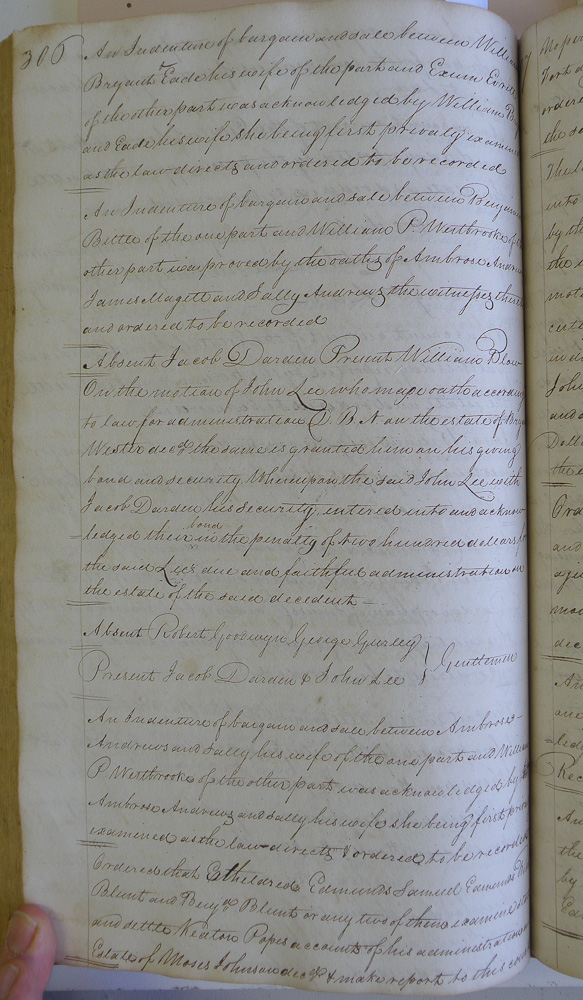 306
An Indenture of bargain and sale between Willia
Bryant & Eade his wife of the part and Exum
of the other part was acknowledged by William B
and Eade his wife she being first privaly examin
as the law directs and ordered to be recorded
An Indenture of bargain and sale between Benjamin
Bittle of the one part and William P. Westbrook of
other part was proved by the oaths of Ambrose Andrew
James Magett and Sally Andrews the witnesses there
and ordered to be recorded
Absent Jacob Darden Present William Blow
On the motion of John Lee who made oath according
to law for administration D. B. N on the estate of
Wester decd. the same is granted him on his giving
bond and security, Whereupon the said John Lee with
Jacob Darden his security, entered into and acknow
=ledged their bond in the penalty of two hundred dollars
the said Lees due and faithful administration on
the estate of the said decedent —
Absent Robert Goodwyn George Gurley
Present Jacob Darden & John Lee } Gentlemen
An Indenture of bargain and sale between Ambrose
Andrews and Sally his wife of the one part and William
P. Westbrook of the other part was acknowledged by
Ambrose Andrews and Sally his wife she being first priva
examined as the law directs & ordered to be recorded
Ordered that Etheldred Edmunds Samuel Edmunds
Blunt and Benja. Blunt or any two of them examine
and settle Newton Popes accounts of his administration
Estate of Moses Johnson decd. & make report to this cou